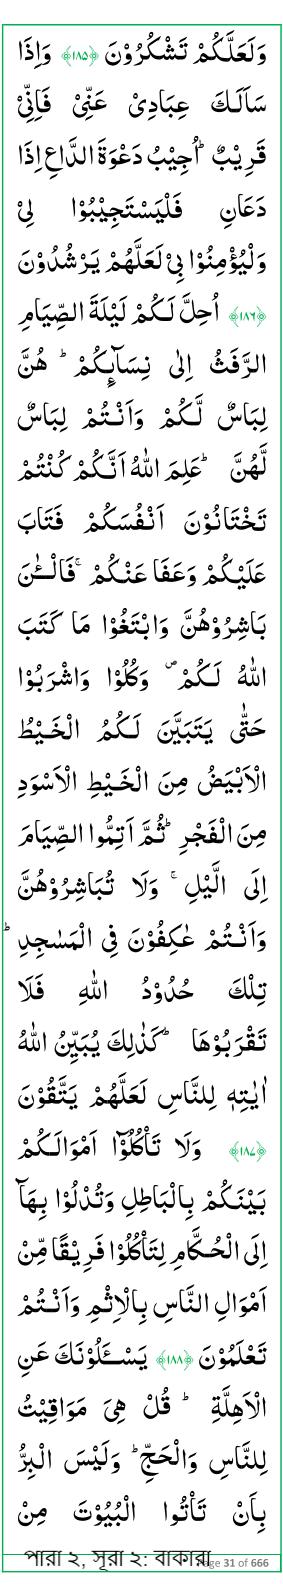 وَلَعَلَّكُمۡ تَشۡكُرُوۡنَ ﴿۱۸۵﴾ وَاِذَا
سَاَلَـكَ عِبَادِىۡ عَنِّىۡ فَاِنِّىۡ
قَرِيۡبٌؕ اُجِيۡبُ دَعۡوَةَ الدَّاعِ اِذَا
دَعَانِ فَلۡيَسۡتَجِيۡبُوۡا لِىۡ
وَلۡيُؤۡمِنُوۡا بِىۡ لَعَلَّهُمۡ يَرۡشُدُوۡنَ
﴿۱۸۶﴾ اُحِلَّ لَـكُمۡ لَيۡلَةَ الصِّيَامِ
الرَّفَثُ اِلٰى نِسَآٮِٕكُمۡ‌ؕ هُنَّ
لِبَاسٌ لَّـكُمۡ وَاَنۡـتُمۡ لِبَاسٌ
لَّهُنَّ ؕ عَلِمَ اللّٰهُ اَنَّکُمۡ كُنۡتُمۡ
تَخۡتَانُوۡنَ اَنۡفُسَکُمۡ فَتَابَ
عَلَيۡكُمۡ وَعَفَا عَنۡكُمۡۚ فَالۡــٰٔنَ
بَاشِرُوۡهُنَّ وَابۡتَغُوۡا مَا کَتَبَ
اللّٰهُ لَـكُمۡ ۖ وَكُلُوۡا وَاشۡرَبُوۡا
حَتّٰى يَتَبَيَّنَ لَـكُمُ الۡخَـيۡطُ
الۡاَبۡيَضُ مِنَ الۡخَـيۡطِ الۡاَسۡوَدِ
مِنَ الۡفَجۡرِ‌ؕ ثُمَّ اَتِمُّوا الصِّيَامَ
اِلَى الَّيۡلِ‌ۚ وَلَا تُبَاشِرُوۡهُنَّ
وَاَنۡـتُمۡ عٰكِفُوۡنَ فِى الۡمَسٰجِدِؕ
تِلۡكَ حُدُوۡدُ اللّٰهِ فَلَا
تَقۡرَبُوۡهَا ؕ كَذٰلِكَ يُبَيِّنُ اللّٰهُ
اٰيٰتِهٖ لِلنَّاسِ لَعَلَّهُمۡ يَتَّقُوۡنَ
﴿۱۸۷﴾ وَلَا تَاۡكُلُوۡٓا اَمۡوَالَـكُمۡ
بَيۡنَكُمۡ بِالۡبَاطِلِ وَتُدۡلُوۡا بِهَآ
اِلَى الۡحُـکَّامِ لِتَاۡکُلُوۡا فَرِيۡقًا مِّنۡ
اَمۡوَالِ النَّاسِ بِالۡاِثۡمِ وَاَنۡـتُمۡ
تَعۡلَمُوۡنَ ﴿۱۸۸﴾ يَسۡـــَٔلُوۡنَكَ عَنِ
الۡاَهِلَّةِ ‌ؕ قُلۡ هِىَ مَوَاقِيۡتُ
لِلنَّاسِ وَالۡحَجِّؕ وَلَيۡسَ الۡبِرُّ
بِاَنۡ تَاۡتُوا الۡبُيُوۡتَ مِنۡ
পারা ২, সূরা ২: বাকারা Page 31 of 666